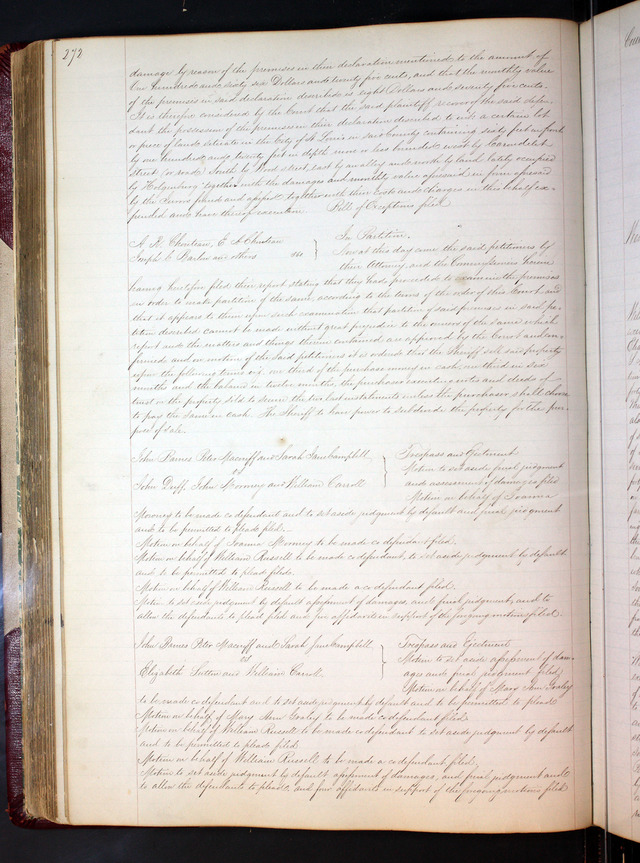 272
damage by reason of the premises in their declaration mentioned to the amount of
One hundred and sixty six Dollars and twenty five cents, and that the monthly value
of the premises in said declaration described is eight Dollars and seventy five cents.
It is therefore considered by the Court that the said plaintiff recover of the said defen-
dant the possession of the premises in their declaration described to wit a certain lot
or piece of land situate in the City of St Louis in said County containing sixty feet in front
by one hundred and twenty feet in depth more or less bounded west by Carondelet
Street (or road) South by Wood street, east by an alley and north by land lately occupied
by together with the damages and monthly value aforesaid in form aforesaid
by the Jurors found and assessed together with their Costs and charges in this behalf ex-
pended and have thereof execution Bill of Exceptions filed
A. R. Chouteau, E A Chouteau
Joseph C Barlow and others
In Partition.
Now at this day came the said petitioners by
their Attorney, and the Commissioners herein
having heretofore filed their report stating that they had proceeded to examine the premises
in order to make partition of the same, according to the terms of the order of this Court, and
that it appears to them upon such examination that partition of said premises in said pe-
tition described cannot be made without great prejudice to the owners of the same which
report and the matters and things therein contained are approved by the Court and con-
firmed and on motion of the said petitioners it is ordered that the Sheriff sell said property
upon the following terms viz. one third of the purchase money in cash, one third in six
months and the balance in twelve months, the purchaser executing notes and deeds of
trust on the property sold to secure the two last instalments unless the purchaser shall choose
to pay the same in cash. The Sheriff to have power to subdivide the property for the pur-
pose of sale.
John Barnes Peter Macuff and Sarah Jane Campbell
vs
John Duff, John Mooney and William Carroll
Trespass and Ejectment
Motion to set aside final judgment
and assessment of damages filed
Motion on behalf of Joanna
Mooney to be made co defendant and to set aside judgment by default and final judgment
and to be permitted to plead filed.
Motion on behalf of Joanna Mooney to be made co defendant filed.
Motion on behalf of William Russell to be made co defendant, to set aside judgement by default
and to be permitted to plead filed.
Motion on behalf of William Russell to be made a co defendant filed.
Motion to set aside judgment by default assessment of damages, and final judgment, and to
allow the defendants to plead filed and five affidavits in support of the foregoing motions filed.
John Barnes Peter Macuff and Sarah Jane Campbell
vs
Elizabeth Sutton and William Carroll
Trespass and Ejectment
Motion to set aside assessment of dam-
ages and final judgment filed,
Motion on behalf of Mary Ann
to be made co defendant and to set aside judgment by default and to be permitted to plead
Motion on behalf of Mary Ann to be made co defendant filed
Motion on behalf of William Russell to be made co defendant to set aside judgment by default
and to be permitted to plead filed
Motion on behalf of William Russell to be made a co defendant filed,
Motion to set aside judgment by default assessment of damages, and final judgment and
to allow the defendants to plead, and five affidavits in support of the foregoing motions filed